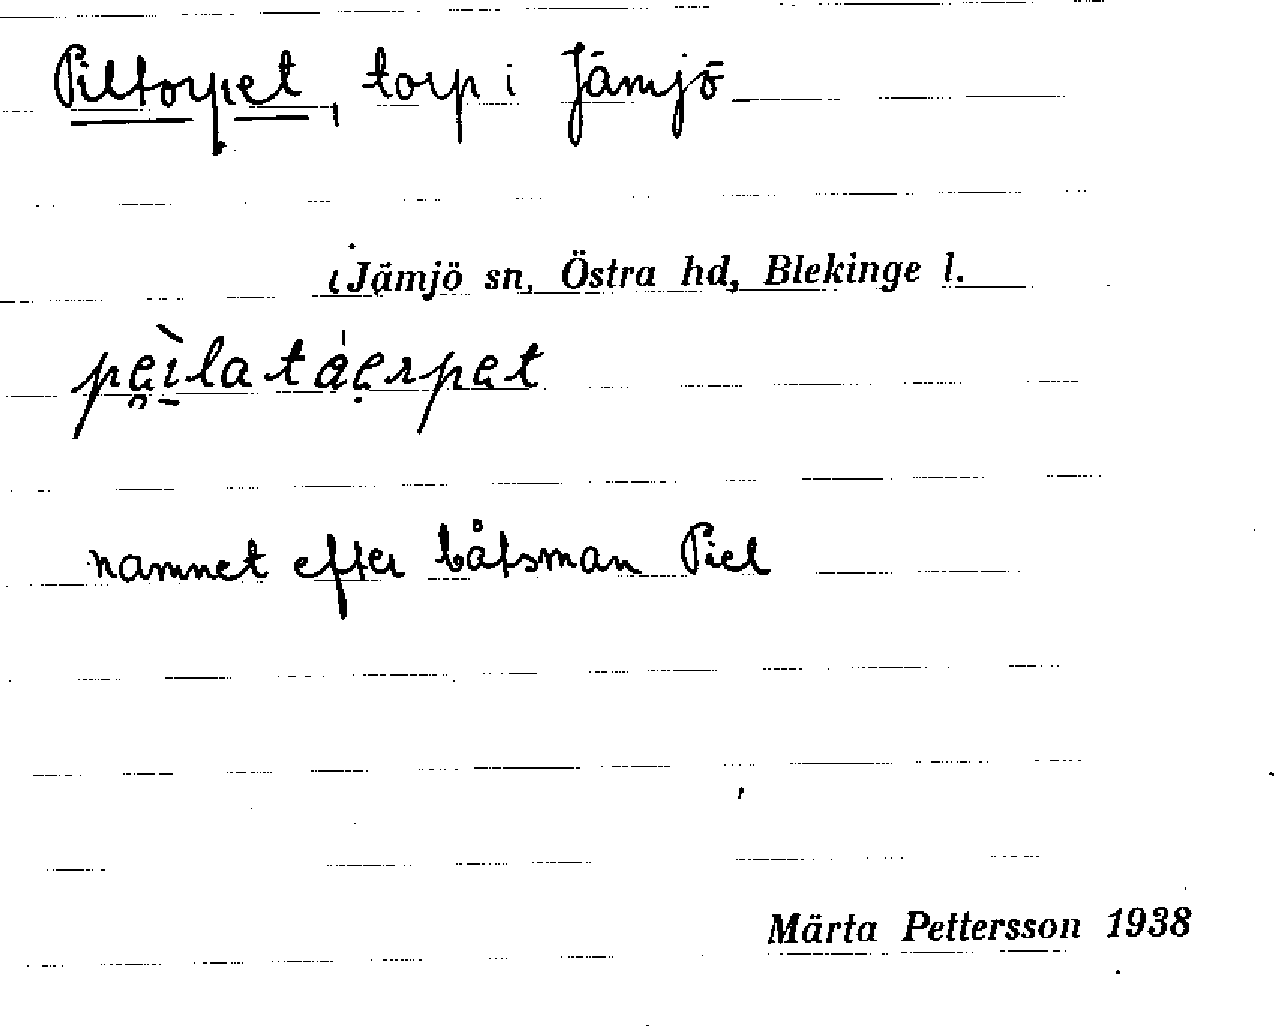 Piltorpet, torp i Jämjö
i Jämjö sn, Östra hd, Blekinge l.
pe̯ìla táe̤rpet
namnet efter båtsman Piel
Märta Pettersson 1938